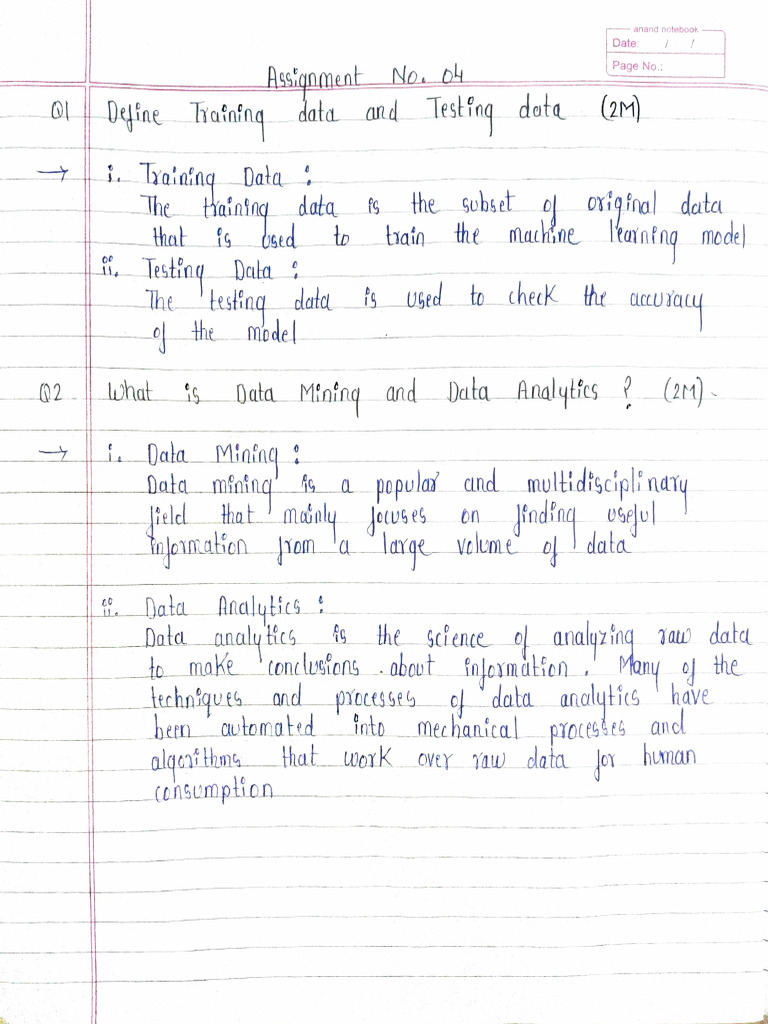 anand notebook
Date: / /
Page No.:
Assignment No. 04
Q1 Define Training data and Testing data (2M)
→ i. Training Data :
The training data is the subset of original data
that is used to train the machine learning model
ii. Testing Data :
The testing data is used to check the accuracy
of the model
Q2 What is Data Mining and Data Analytics ? (2M).
→ i. Data Mining :
Data mining is a popular and multidisciplinary
field that mainly focuses on finding useful
information from a large volume of data
ii. Data Analytics :
Data analytics is the science of analyzing raw data
to make conclusions about information. Many of the
techniques and processes of data analytics have
been automated into mechanical processes and
algorithms that work over raw data for human
consumption